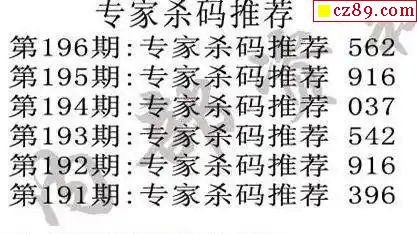 cz89.com
专家杀码推荐
第196期:专家杀码推荐 562
第195期:专家杀码推荐 916
第194期:专家杀码推荐 037
第193期:专家杀码推荐 542
第192期:专家杀码推荐 916
第191期:专家杀码推荐 396